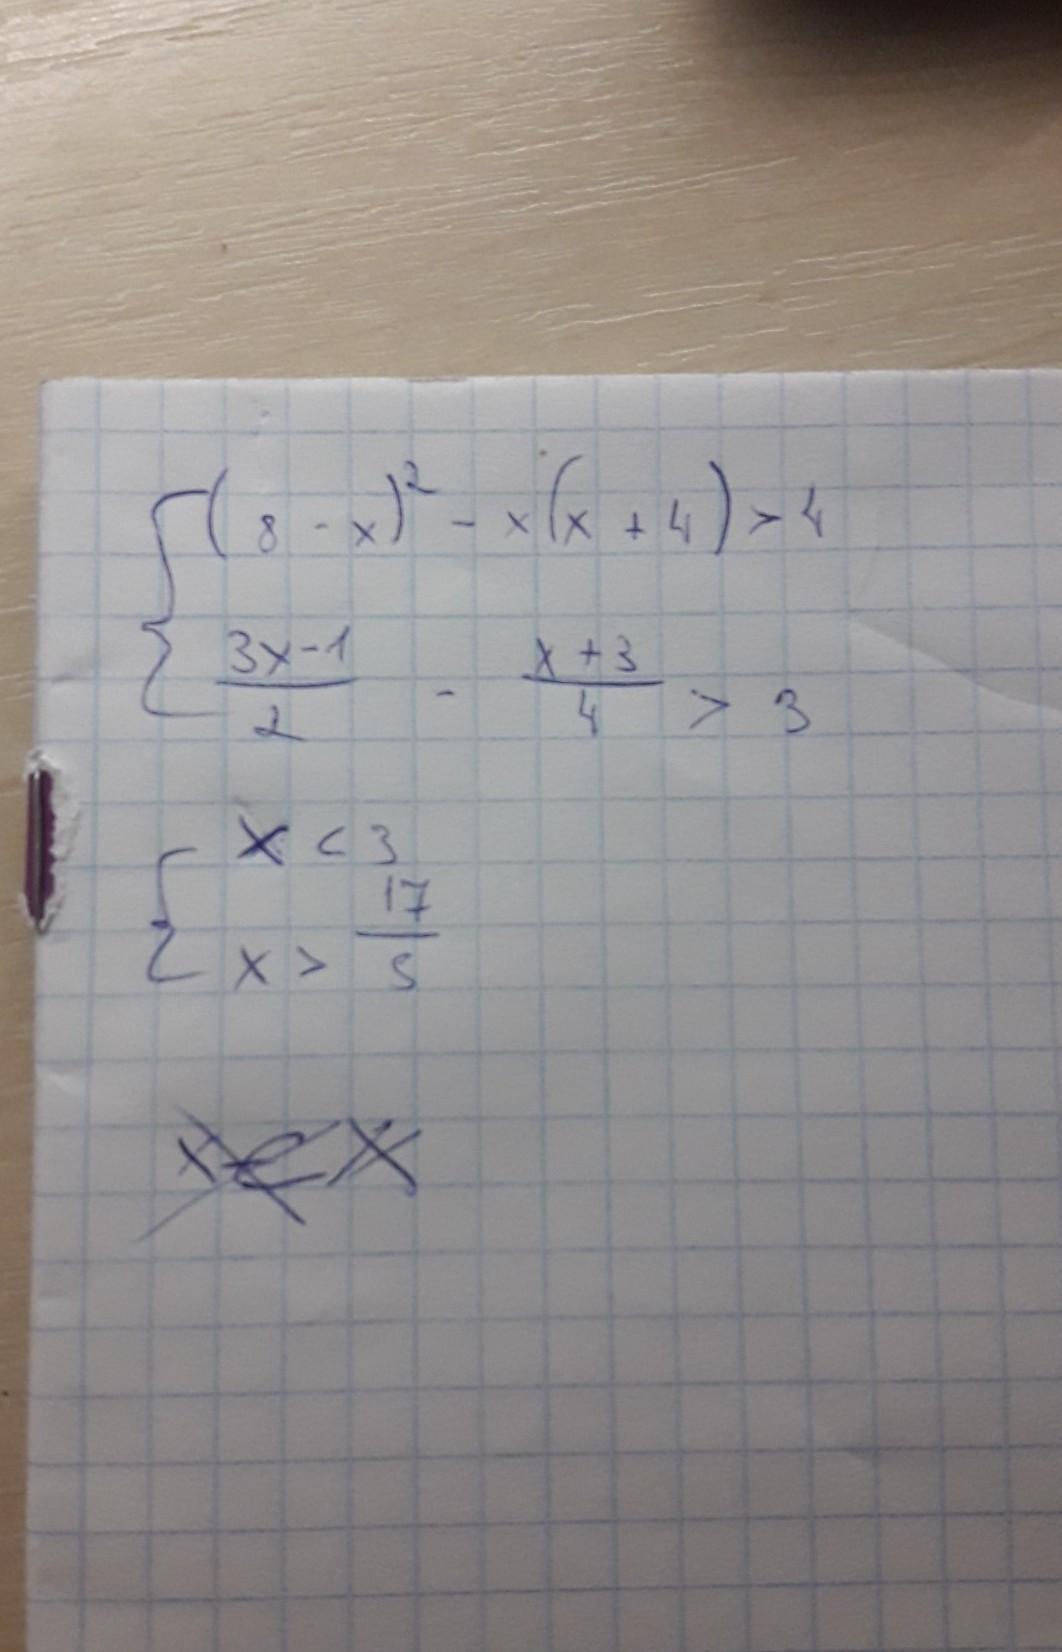 (8 - x)² - x(x + 4) > 4
3x-1/2 - x+3/4 > 3
x < 3
x > 17/5